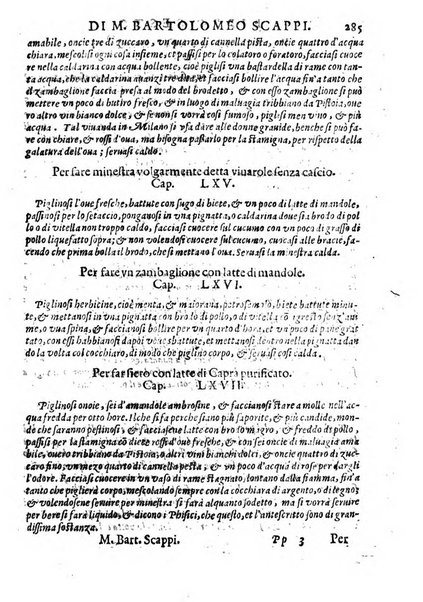 DI M. BARTOLOMEO SCAPPI. 285
amabile, oncie tre di zuccaro, vn quarto di cannella pista, oncie quattro d'acqua
chiara, mescolisi ogni cosa insieme, et passisi per lo colatoro o foratoro, facciasi cuo
cere nella caldarina con acqua bollente, cioè piglisi vna bastarda della di rame con tan-
ta acqua, che la caldarina stia &
facciasi bollire l'acqua fin a tanto
che il zambaglione pigli corpo al modo del brodetto, & con esso zambaglione si può
mettere vn poco di butiro fresco, & in luogo di maluagia tribbiano da Pistoia,
ouero altro vin bianco dolce, & se non si vorrà cosi fumoso, minesi meno vino, & più
acqua. Tal viuanda in Milano s'vsa dare alle donne grauide, benche si può fa-
re con chiare, & rossi d'oua, ma bisogna passarlo per la stamigna, per rispetto della
galatura dell'oua; seruasi caldo.
Per fare minestra volgarmente detta viuarole senza cascio.
Cap. LXV.
Piglinosi l'oue fresche, battute con sugo di biete, & vn poco di latte di mandole,
passinosi per lo setaccio, pongansi in vna pignatta, o caldarina doue sia brodo di pol
lo o di vitella non troppo caldo, faccisi cuocere sul cucumo con vn poco di grasso di
pollo liquefatto sopra; & non volendosi cuocere sul cucumo, cuocasi alle bracie, fa-
cendo che prima bolla il brodo, che si mettano l'oua. Seruasi la minestra calda.
Per fare vn zambaglione con latte di mandole.
Cap. LXVI.
Piglinosi herbicine, cioè menta, & maiorana, petrosemolo, biete battute minu-
te, & mettanosi in vna pignatta con brodo di pollo, o di vitella con agresto senz'ani
ma, o vuaspina, & faccianosi bollire per vn quarto d'hora, et vn poco di panegrat-
tato, con essi habbianosi dapoi oue sbattute, et mettanosi dentro nella pignatta dan
do la volta col cocchiaro, di modo che piglino corpo, & seruasi cosi calda.
Per far siero con latte di Capra purificato.
Cap. LXVII.
Piglinosi oncie, sei d'amandole ambrosine, & faccianosi stare a molle nell'ac-
qua fredda per otto hore. Il che si fa perche sieno più saporite, & più candide, mon-
de che saranno pestinosi, & stemperinosi con latte non agro, & freddo,
passisi per la stamigna con dieci oue fresche, & con sei oncie di maluagia ama
bile, ouero tribbiano da Pistoia, o altri vini bianchi dolci, & oncie quattro di zuc-
caro fino, vn mezo quarto di cannella pesta, & vn poco d'acqua di rose per dargli
l'odore. Facciasi cuocere in vn vaso di rame stagnato, lontano dalla fiamma, fin'a
tanto che piglierà corpo, mescolandolo sempre con la cocchiara di argento, o di legno,
& volendosene seruire per minestra si farà alquanto sodetto, ma se si vorrà per be-
re si farà liquido, & dicono i Phisici, che questo et l'antescritto sono di gran-
dissima sostanza.
M. Bart. Scappi. Pp 3 Per